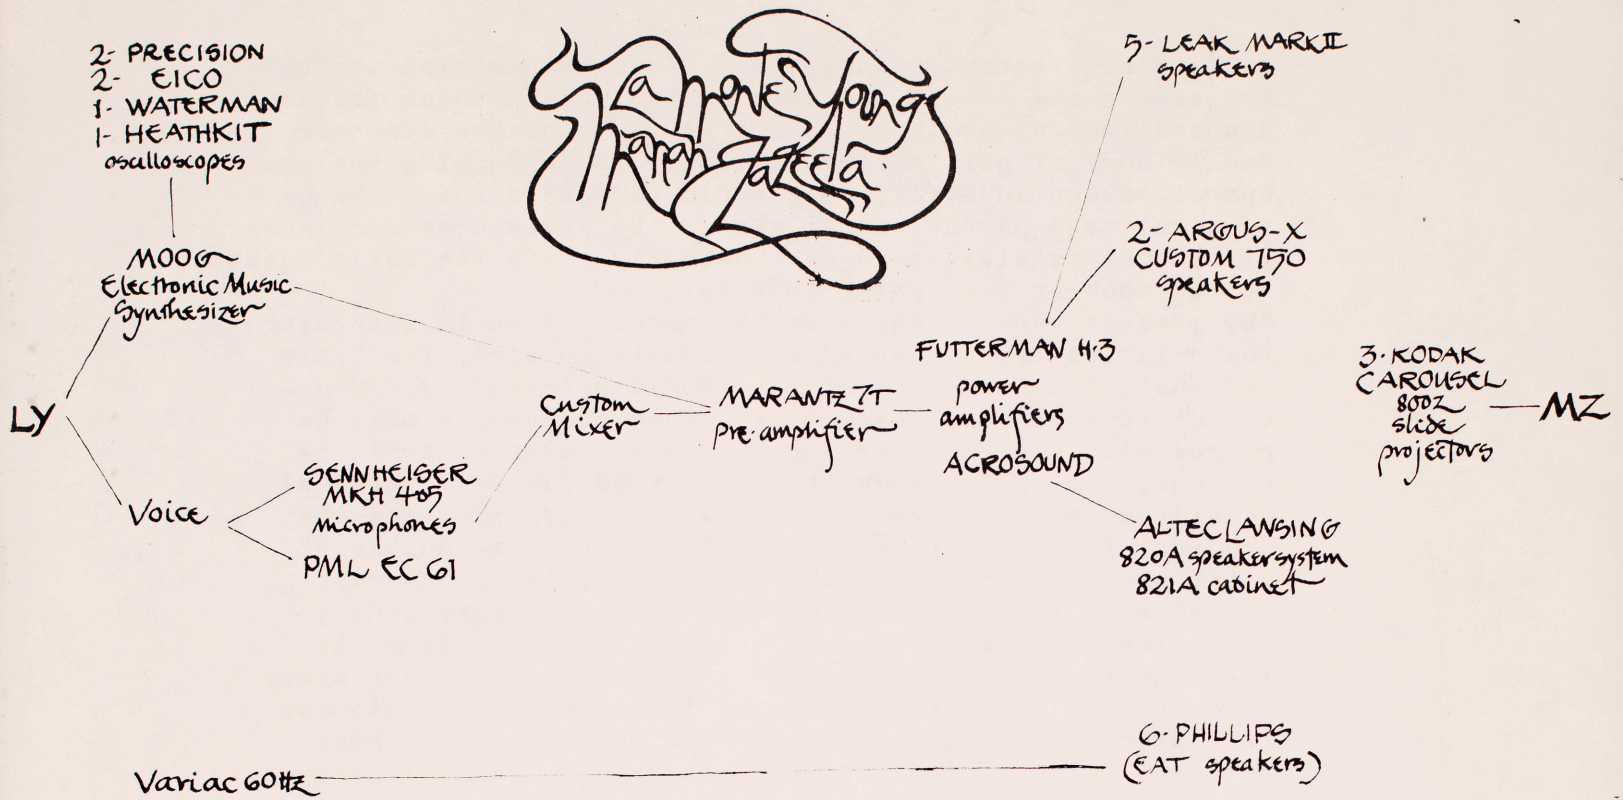 La Monte Young
Marian Zazeela
2- PRECISION
2- EICO
1- WATERMAN
1- HEATHKIT
oscilloscopes
MOOG
Electronic Music
Synthesizer
LY
Voice
SENNHEISER
MKH 405
microphones
PML EC 61
Custom
Mixer
MARANTZ 7T
Pre-amplifier
FUTTERMAN H-3
power
amplifiers
ACROSOUND
5- LEAK MARK II
speakers
2- ARGUS-X
CUSTOM 750
speakers
ALTEC LANSING
820A speaker system
821A cabinet
3-KODAK
CAROUSEL
800Z
slide
projectors
MZ
Variac 60Hz
6- PHILLIPS
(EAT speakers)